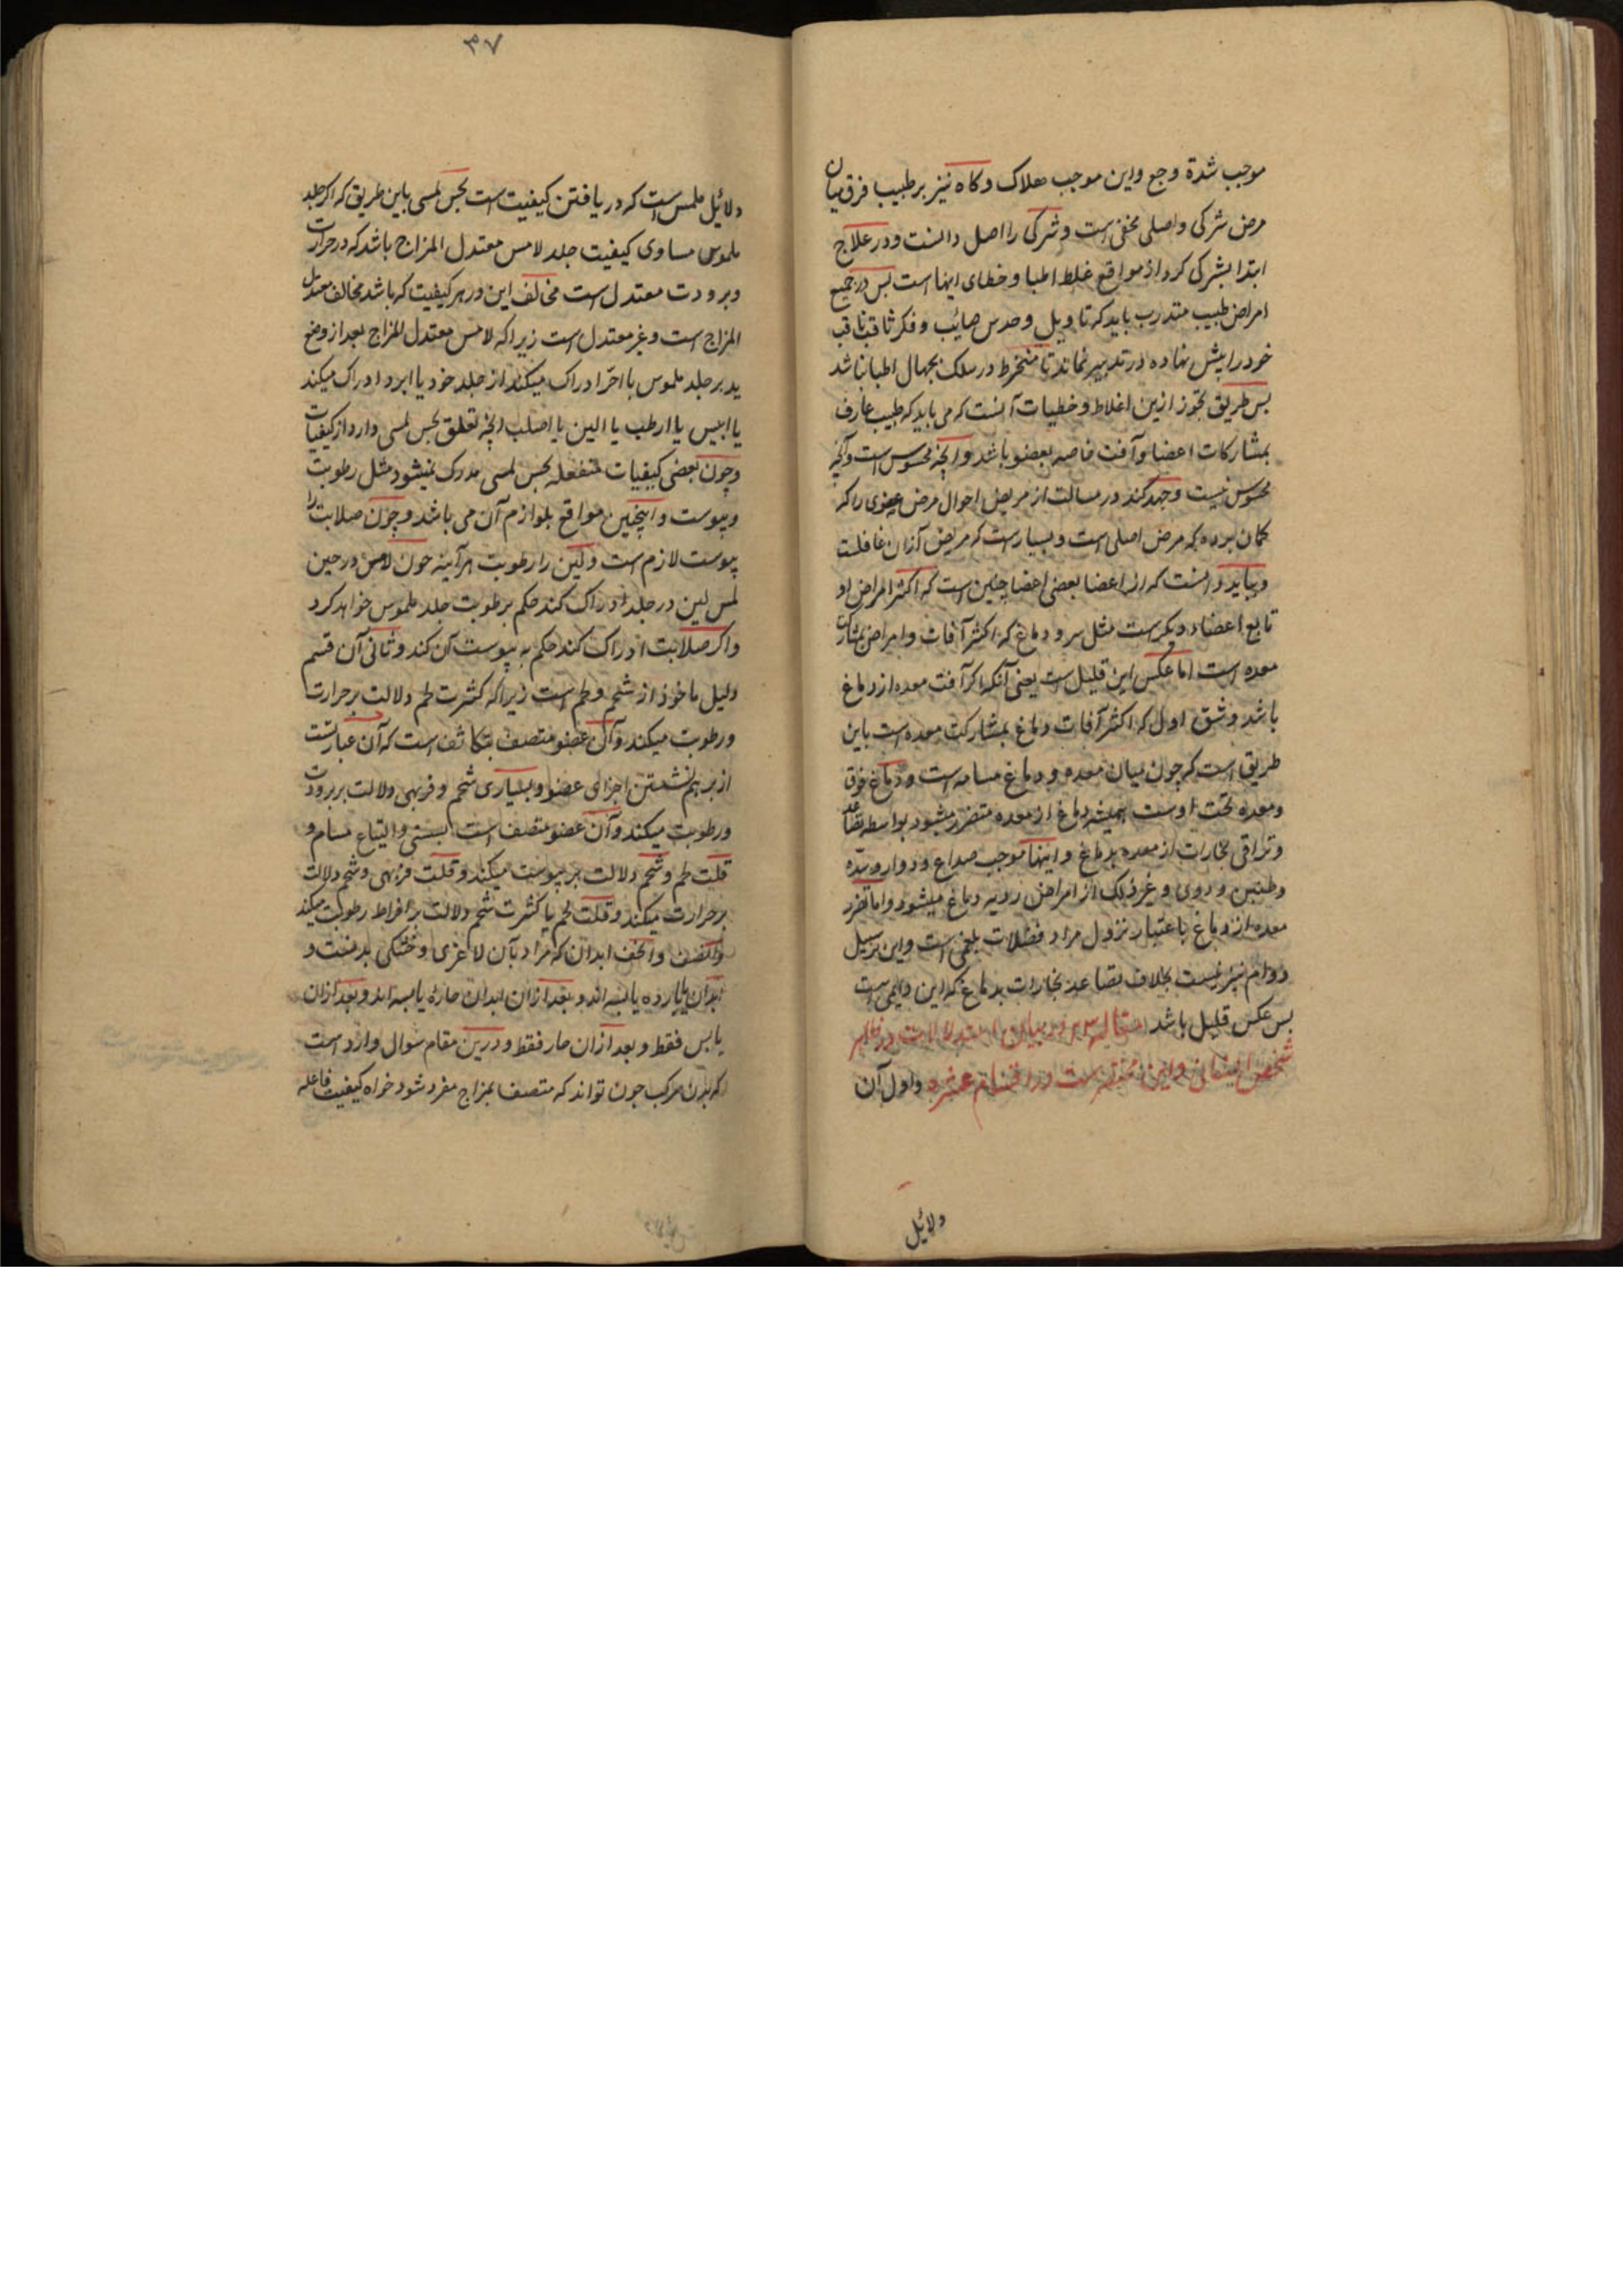 موجب شدة وجع واین موجب هلاک وکاه نیز بر طبیب فرق میان
مرض شرکی واصلی مخفی است وشرکی را اصل دانست ودر علاج
ابتدا بشرکی کرد از مواقع غلط اطبا وخطای اینها است بس در جمیع
امراض طبیب متدرب باید که تاویل وحدس صائب وفکر ثاقب
خود را پیش نهاده در تدبیر نماند تا منخرط در سلک جهال اطبا نباشد
بس طریق تحوز ازین اغلاط وخطیات آنست که می باید که طبیب عارف
بمشارکات اعضا وآفت خاصه بعضو باشد وانچه محسوس است وآنچه
محسوس نیست وجهد کند در مسالت از مریض احوال مرض عضوی را که
کمان برده که مرض اصلی است وبسیارست که مریض ازان غافلست
وبباید دانست که از اعضا بعضی اعضا چنین است که اکثر امراض او
تابع اعضاء دیکرست مثل سر ودماغ که اکثر آفات وامراض بمشارکت
معده است اما عکس این قلیل است یعنی آنکه اکر آفت معده از دماغ
باشد وشق اول که اکثر آفات دماغ بمشارکت معده است باین
طریق است که چون میان معده ودماغ مسامه است ودماغ فوق
ومعده تحت اوست همیشه دماغ از معده متضرر میشود بواسطه تصاعد
وتراقی بخارات از معده بدماغ واینها موجب صداع ودوار وسدّه
وطنین ودوی وغیر ذلک از امراض ردیه دماغ میشود واما تضرر
معده از دماغ باعتبار نزول مراد فضلات بلغمی است واین بر سبیل
دوام نیز نیست بخلاف تصاعد بخارات بدماغ که این دایمی است
بس عکس قلیل باشد مقاله در بیان
شخص انسانی واین منحصر است در اقسام عشره واول آن
دلائل
۳۷
دلائل ملمس است که دریافتن کیفیت است بحس لمسی باین طریق که اکر جلد
ملموس مساوی کیفیت جلد لامس معتدل المزاج باشد که در حرارت
وبرودت معتدل است مخالف این در هر کیفیت که باشد مخالف معتدل
المزاج است وغیر معتدل است زیرا که لامس معتدل المزاج بعد از وضع
ید بر جلد ملموس یا احرّ ادراک میکند از جلد خود یا ابرد ادراک میکند
یا ایبس یا ارطب یا الین یا اصلب انچه تعلق بحس لمسی دارد از کیفیات
وچون بعضی کیفیات منفعله بحس لمسی مدرک نمیشود مثل رطوبت
ویبوست واینچنین مواقع بلوازم آن می باشد وچون صلابت را
یبوست لازم است ولین را رطوبت هر آینه چون لامس در حین
لمس لین در جلد ادراک کند حکم برطوبت جلد ملموس خواهد کرد
واکر صلابت ادراک کند حکم به یبوست آن کند وثانی آن قسم
دلیل ماخوذ از شحم ولحم است زیرا که کثرت لحم دلالت بر حرارت
ورطوبت میکند وآن عضو متصف بتکاثف است که آن عبارتست
از بر هم نشستن اجزای عضو وبسیاری شحم وفربهی دلالت بر برودت
ورطوبت میکند وآن عضو متصف است بسستی واتساع مسام و
قلت لحم وشحم دلالت بر یبوست میکند وقلت فربهی وشحم دلالت
بر حرارت میکند وقلت لحم با کثرت شحم دلالت بر افراط رطوبت میکند
وانحف ابدان که مراد بآن لاغری وخشکی بدنست و
ابدان بارده یابسه اند وبعد ازان ابدان حاره یابسه اند وبعد ازان
یابس فقط وبعد ازان حار فقط ودرین مقام سوال وارد است
که بدن مرکب چون تواند که متصف بمزاج مفرد شود خواه کیفیت فاعله